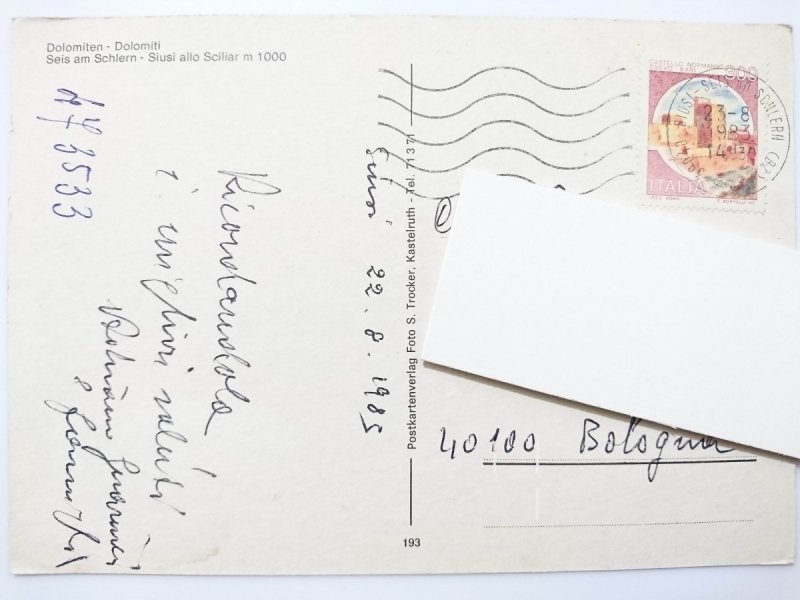 Dolomiten - Dolomiti
Seis am Schlern - Siusi allo Sciliar m 1000
3533
Ricordandola
i migliori saluti
Siusi 22.8.1985
Postkartenverlag Foto S. Trocker, Kastelruth - Tel. 71371
193
CASTELLO NORMANNO
SVEVO BARI
ITALIA
SIUSI - SEIS AM SCHLERN (BZ)
23-8
40100 Bologna